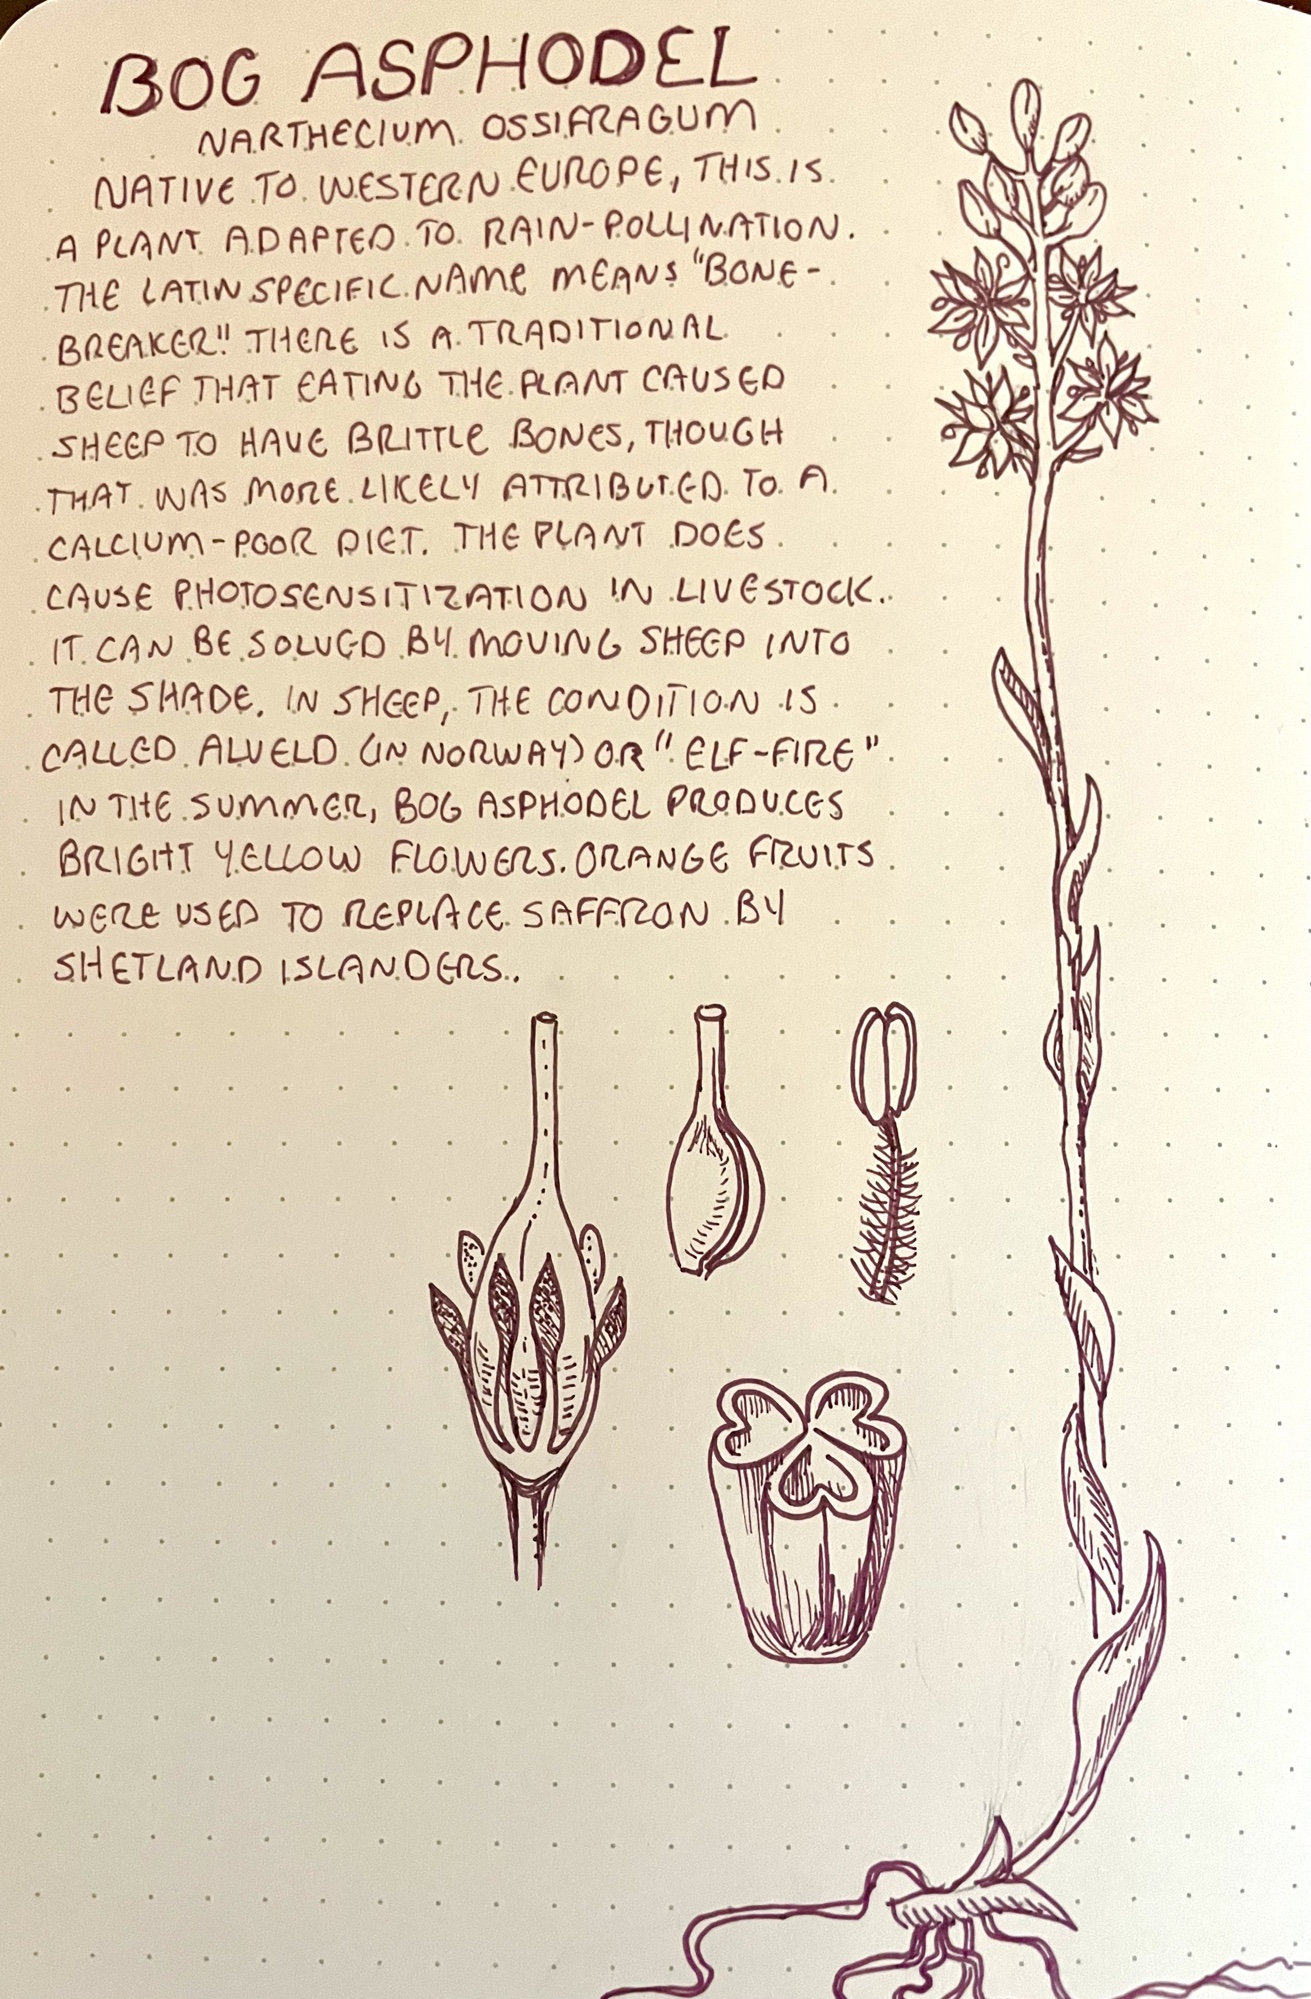 BOG ASPHODEL
NARTHECIUM OSSIFRAGUM
NATIVE TO WESTERN EUROPE, THIS IS
A PLANT ADAPTED TO RAIN-POLLINATION.
THE LATIN SPECIFIC NAME MEANS "BONE-
BREAKER". THERE IS A TRADITIONAL
BELIEF THAT EATING THE PLANT CAUSED
SHEEP TO HAVE BRITTLE BONES, THOUGH
THAT WAS MORE LIKELY ATTRIBUTED TO A
CALCIUM-POOR DIET. THE PLANT DOES
CAUSE PHOTOSENSITIZATION IN LIVESTOCK.
IT CAN BE SOLVED BY MOVING SHEEP INTO
THE SHADE. IN SHEEP, THE CONDITION IS
CALLED ALVELD (IN NORWAY) OR "ELF-FIRE"
IN THE SUMMER, BOG ASPHODEL PRODUCES
BRIGHT YELLOW FLOWERS. ORANGE FRUITS
WERE USED TO REPLACE SAFFRON BY
SHETLAND ISLANDERS.